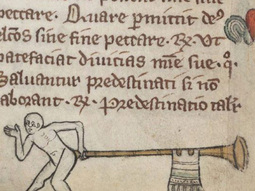 peccare. Quare permittit deꝰ
elcōs sine fine peccare. R̄. Ut
patefaciat divitias miē sue. qͦ
Salvantur predestinati si nō
laborant. R̄. Predestinatio tali